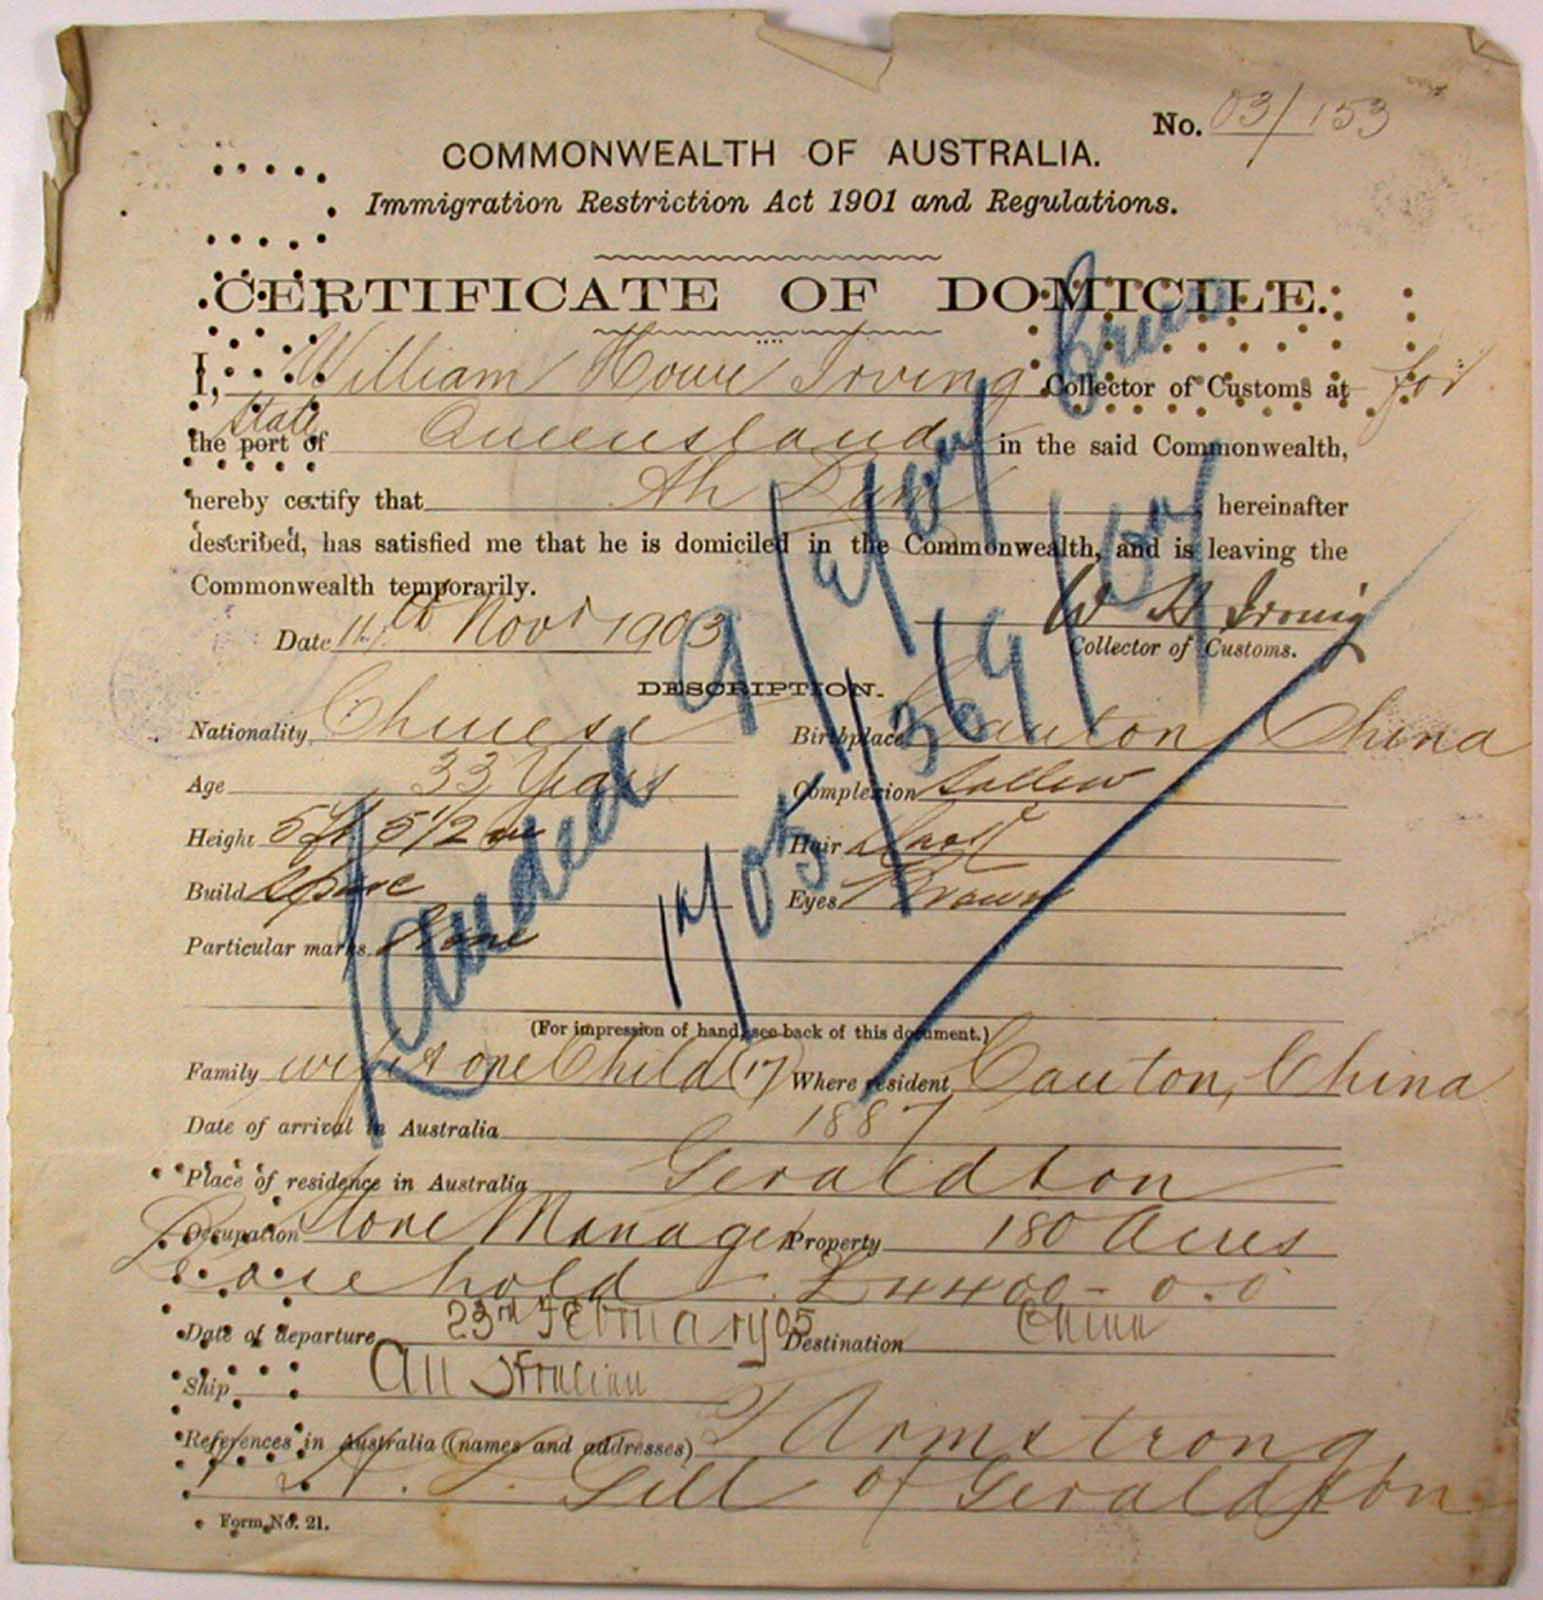 No. 03/153
COMMONWEALTH OF AUSTRALIA.
Immigration Restriction Act 1901 and Regulations.
CERTIFICATE OF DOMICILE.
I, William Howe Irving Collector of Customs at for
State
the port of Queensland in the said Commonwealth,
hereby certify that Ah hereinafter
described, has satisfied me that he is domiciled in the Commonwealth, and is leaving the
Commonwealth temporarily.
Date 11th Novr 1903 W H Irving
Collector of Customs.
DESCRIPTION.
Nationality Chinese Birthplace Canton China
Age 33 Years Complexion Sallow
Height 5 ft 5 1/2 in Hair Dark
Build Spare Eyes Brown
Landed
Particular marks None
(For impression of hand, see back of this document.)
Family wife & one Child (17) Where resident Canton, China
Date of arrival in Australia 1887
Place of residence in Australia Geraldton
Occupation Store Manager Property 180 Acres
Lease hold £4400-0.0
Date of departure 23rd February 05 Destination China
Ship Australian
References in Australia (names and addresses) T Armstrong
Gill of Geraldton
Form No. 21.